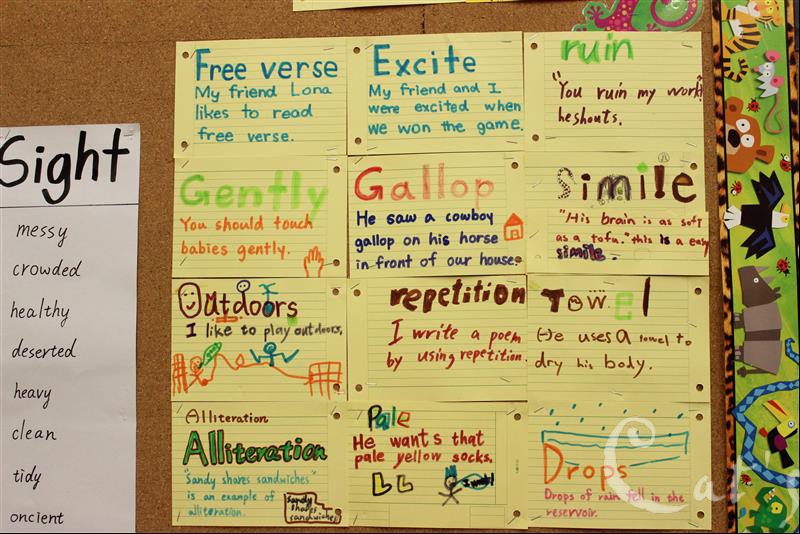 Sight
messy
crowded
healthy
deserted
heavy
clean
tidy
oncient
Free verse
My friend Lona
likes to read
free verse.
Excite
My friend and I
were excited when
we won the game.
ruin
"You ruin my work"
he shouts.
Gently
You should touch
babies gently.
Gallop
He saw a cowboy
gallop on his horse
in front of our house.
Simile
"His brain is as soft
as a tofu." this is a easy
simile.
Outdoors
I like to play outdoors.
repetition
I write a poem
by using repetition.
Towel
He uses a towel to
dry his body.
Alliteration
Alliteration
"Sandy shares sandwiches"
is an example of
alliteration.
Sandy
shares
sandwiches
Pale
He wants that
pale yellow socks.
I want!
Drops
Drops of rain fell in the
reservoir.
Cat's